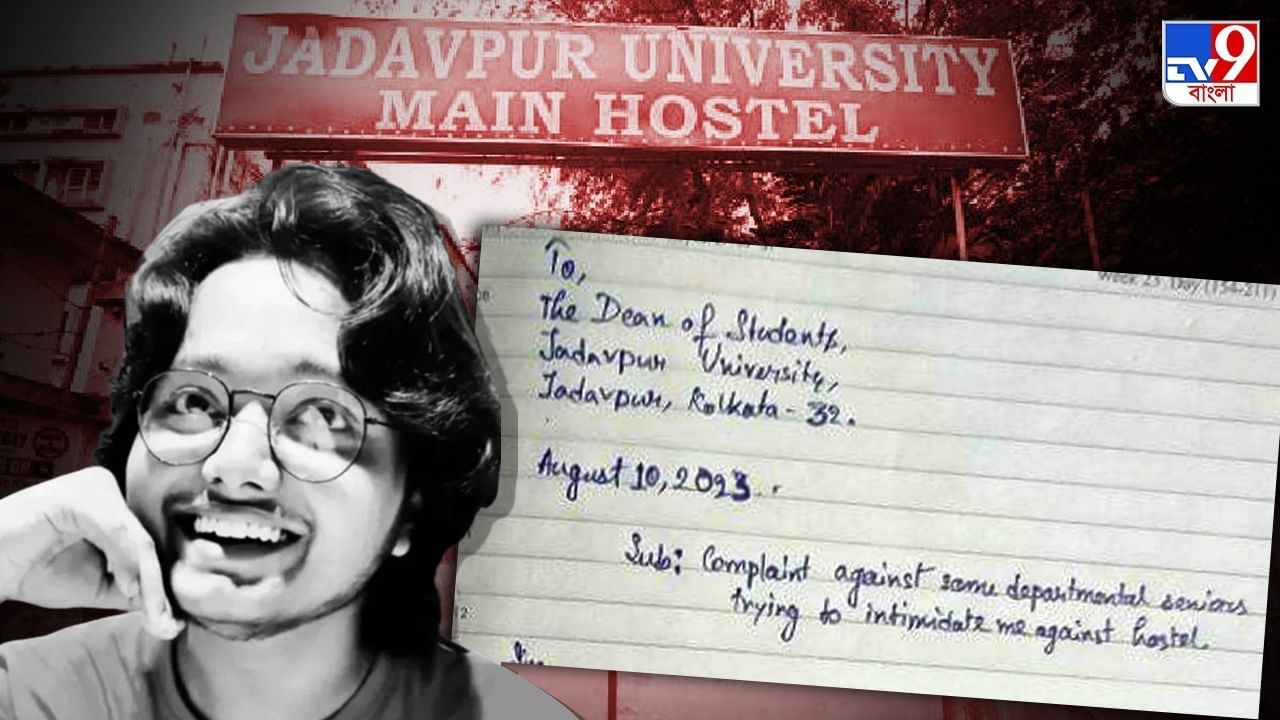 JADAVPUR UNIVERSITY
MAIN HOSTEL
TV9
বাংলা
To,
The Dean of Students,
Jadavpur University,
Jadavpur, Kolkata - 32.
August 10, 2023.
Sub: Complaint against some departmental seniors
trying to intimidate me against hostel